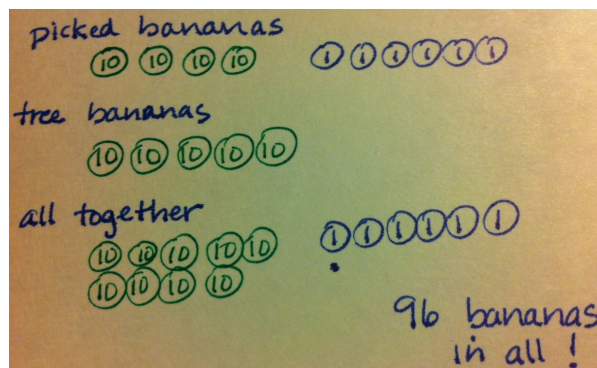 picked bananas
10 10 10 10 1 1 1 1 1 1
tree bananas
10 10 10 10 10
all together
10 10 10 10 10 1 1 1 1 1 1
10 10 10 10
96 bananas
in all !